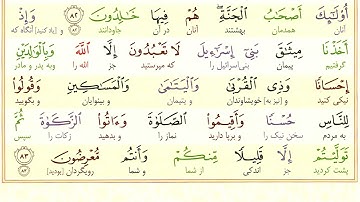 أُوْلَٰٓئِكَ أَصْحَٰبُ الْجَنَّةِ هُمْ فِيهَا خَٰلِدُونَ ٨٢ وَإِذْ
آنان همدمان بهشتند آنان در آن جاودانند ٨٢ و [یاد کنید] آنگاه که
أَخَذْنَا مِيثَٰقَ بَنِىٓ إِسْرَٰٓءِيلَ لَا تَعْبُدُونَ إِلَّا اللَّهَ وَبِالْوَٰلِدَيْنِ
گرفتیم پیمان بنی‌اسرائیل را که مپرستید جز الله را و به پدر و مادر
إِحْسَانًا وَذِى الْقُرْبَىٰ وَالْيَتَٰمَىٰ وَالْمَسَٰكِينِ وَقُولُوا
نیکی کنید و [نیز به] خویشاوندان و یتیمان و بینوایان و بگویید
لِلنَّاسِ حُسْنًا وَأَقِيمُوا الصَّلَوٰةَ وَءَاتُوا الزَّكَوٰةَ ثُمَّ
به مردم سخن نیک را و برپا دارید نماز را و بدهید زکات را سپس
تَوَلَّيْتُمْ إِلَّا قَلِيلًا مِّنكُمْ وَأَنتُم مُّعْرِضُونَ ٨٣
پشت کردید جز اندکی از شما و شما رویگردان [بودید] ٨٣